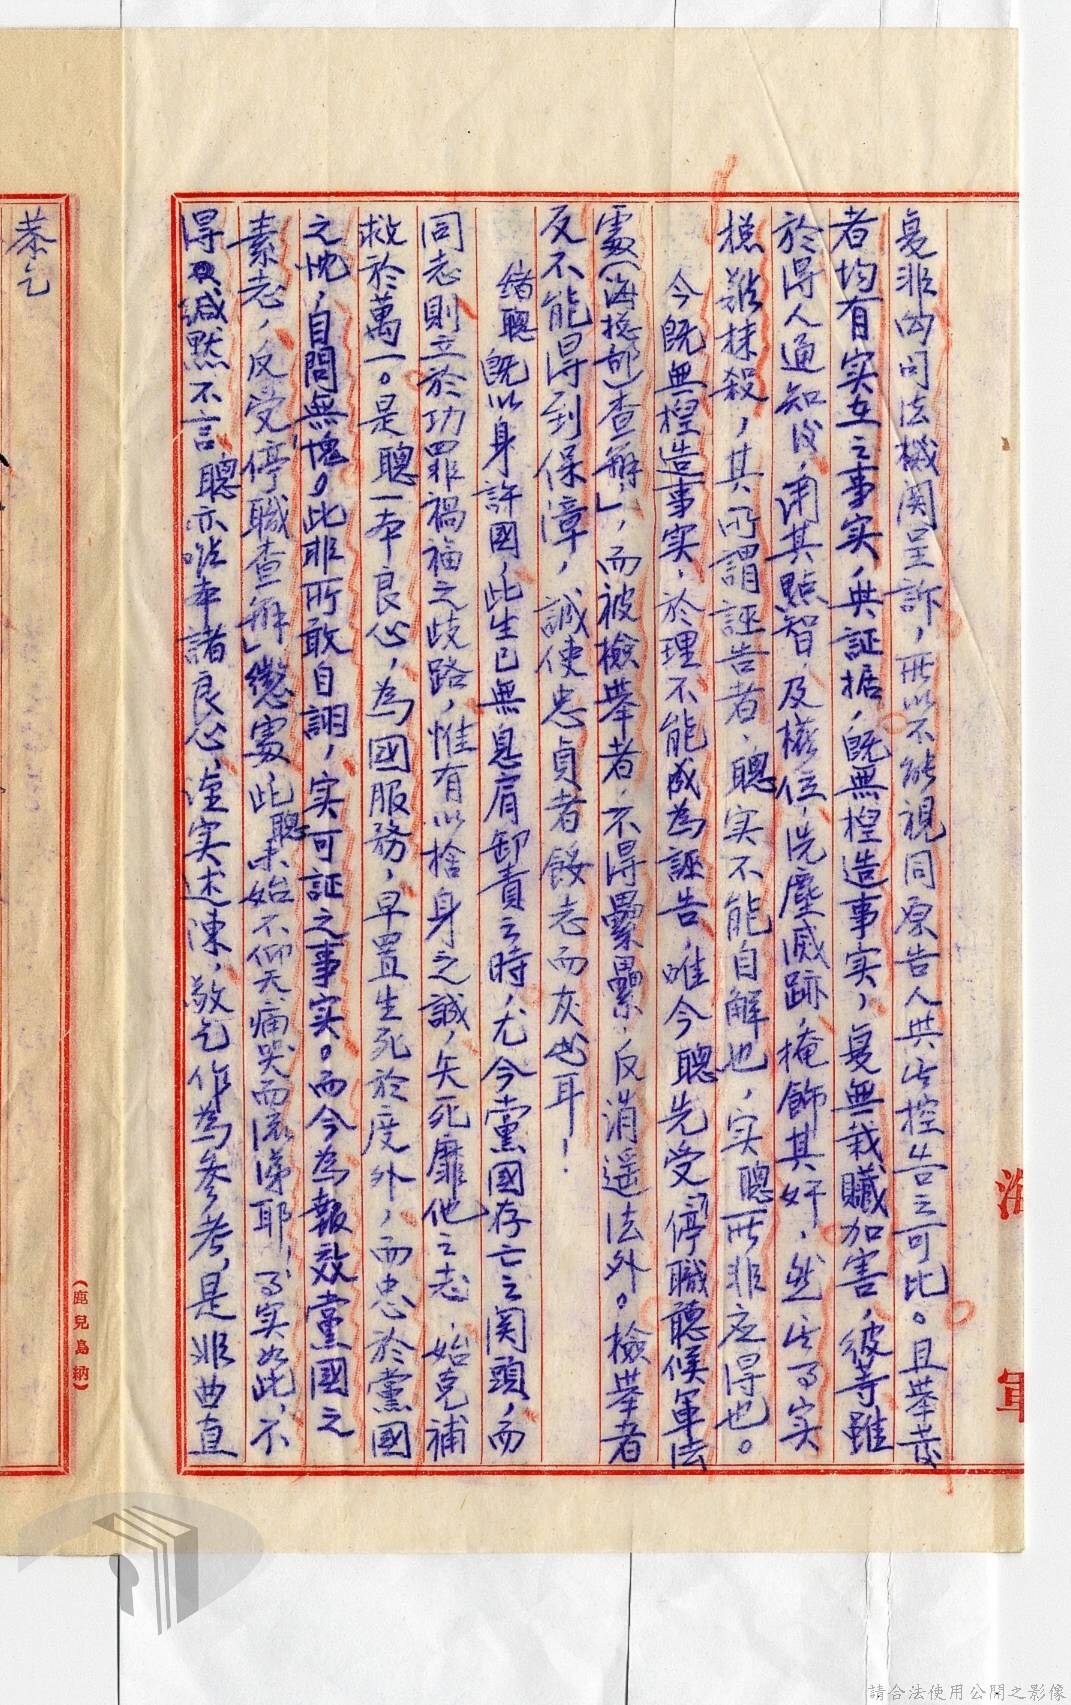 复非向司法機関呈訴，所以不能視同原告人共此控告之可比。且举發
者均有实在之事实，与証据，既無揑造事实，复無栽贜加害，彼等雖
於得人通知後，用其點智，及權位，洗塵滅跡，掩飾其奸，然此事实
㨾難抹殺，其所謂誣告者，聰实不能自解也，实聰所非应得也。
今既無揑造事实，於理不能成為誣告，唯今聰先受「停職聽候軍法
處（海总部）查辦」，而被檢举者，不得纍纍，反消遥法外。檢举者
反不能得到保漳，誠使忠貞者餒志而灰也耳！
緒聰既以身許國，此生已無息肩卸責之時，尤今黨國存亡之関頭，而
同志則立於功罪禍福之歧路，惟有以捨身之誠，矢死靡他之志，始克補
救於萬一。是聰一本良心，為國服務，早置生死於度外，而忠於黨國
之忱，自問無愧。此非所敢自詡，实可証之事实。而今為報效黨國之
素志，反受「停職查辦」懲處，此聰未始不仰天痛哭而流涕耶！事实如此，不
得不緘默不言，聰亦唯本諸良心，謹实述陳，敬乞作為参考，是非曲直
恭乞
海
軍
（鹿兒島納）
請合法使用公開之影像